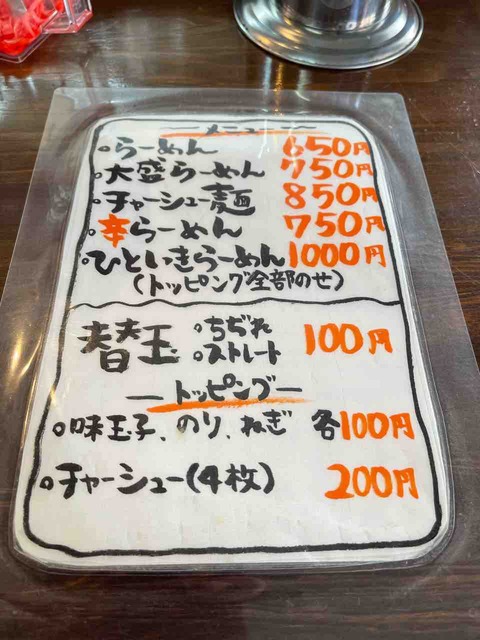 メニュー
。らーめん 650円
。大盛らーめん 750円
。チャーシュー麺 850円
。辛らーめん 750円
。ひといきらーめん 1000円
(トッピング全部のせ)
替玉 。ちぢれ 100円
。ストレート
ートッピングー
。味玉子、のり、ねぎ 各100円
。チャーシュー(4枚) 200円